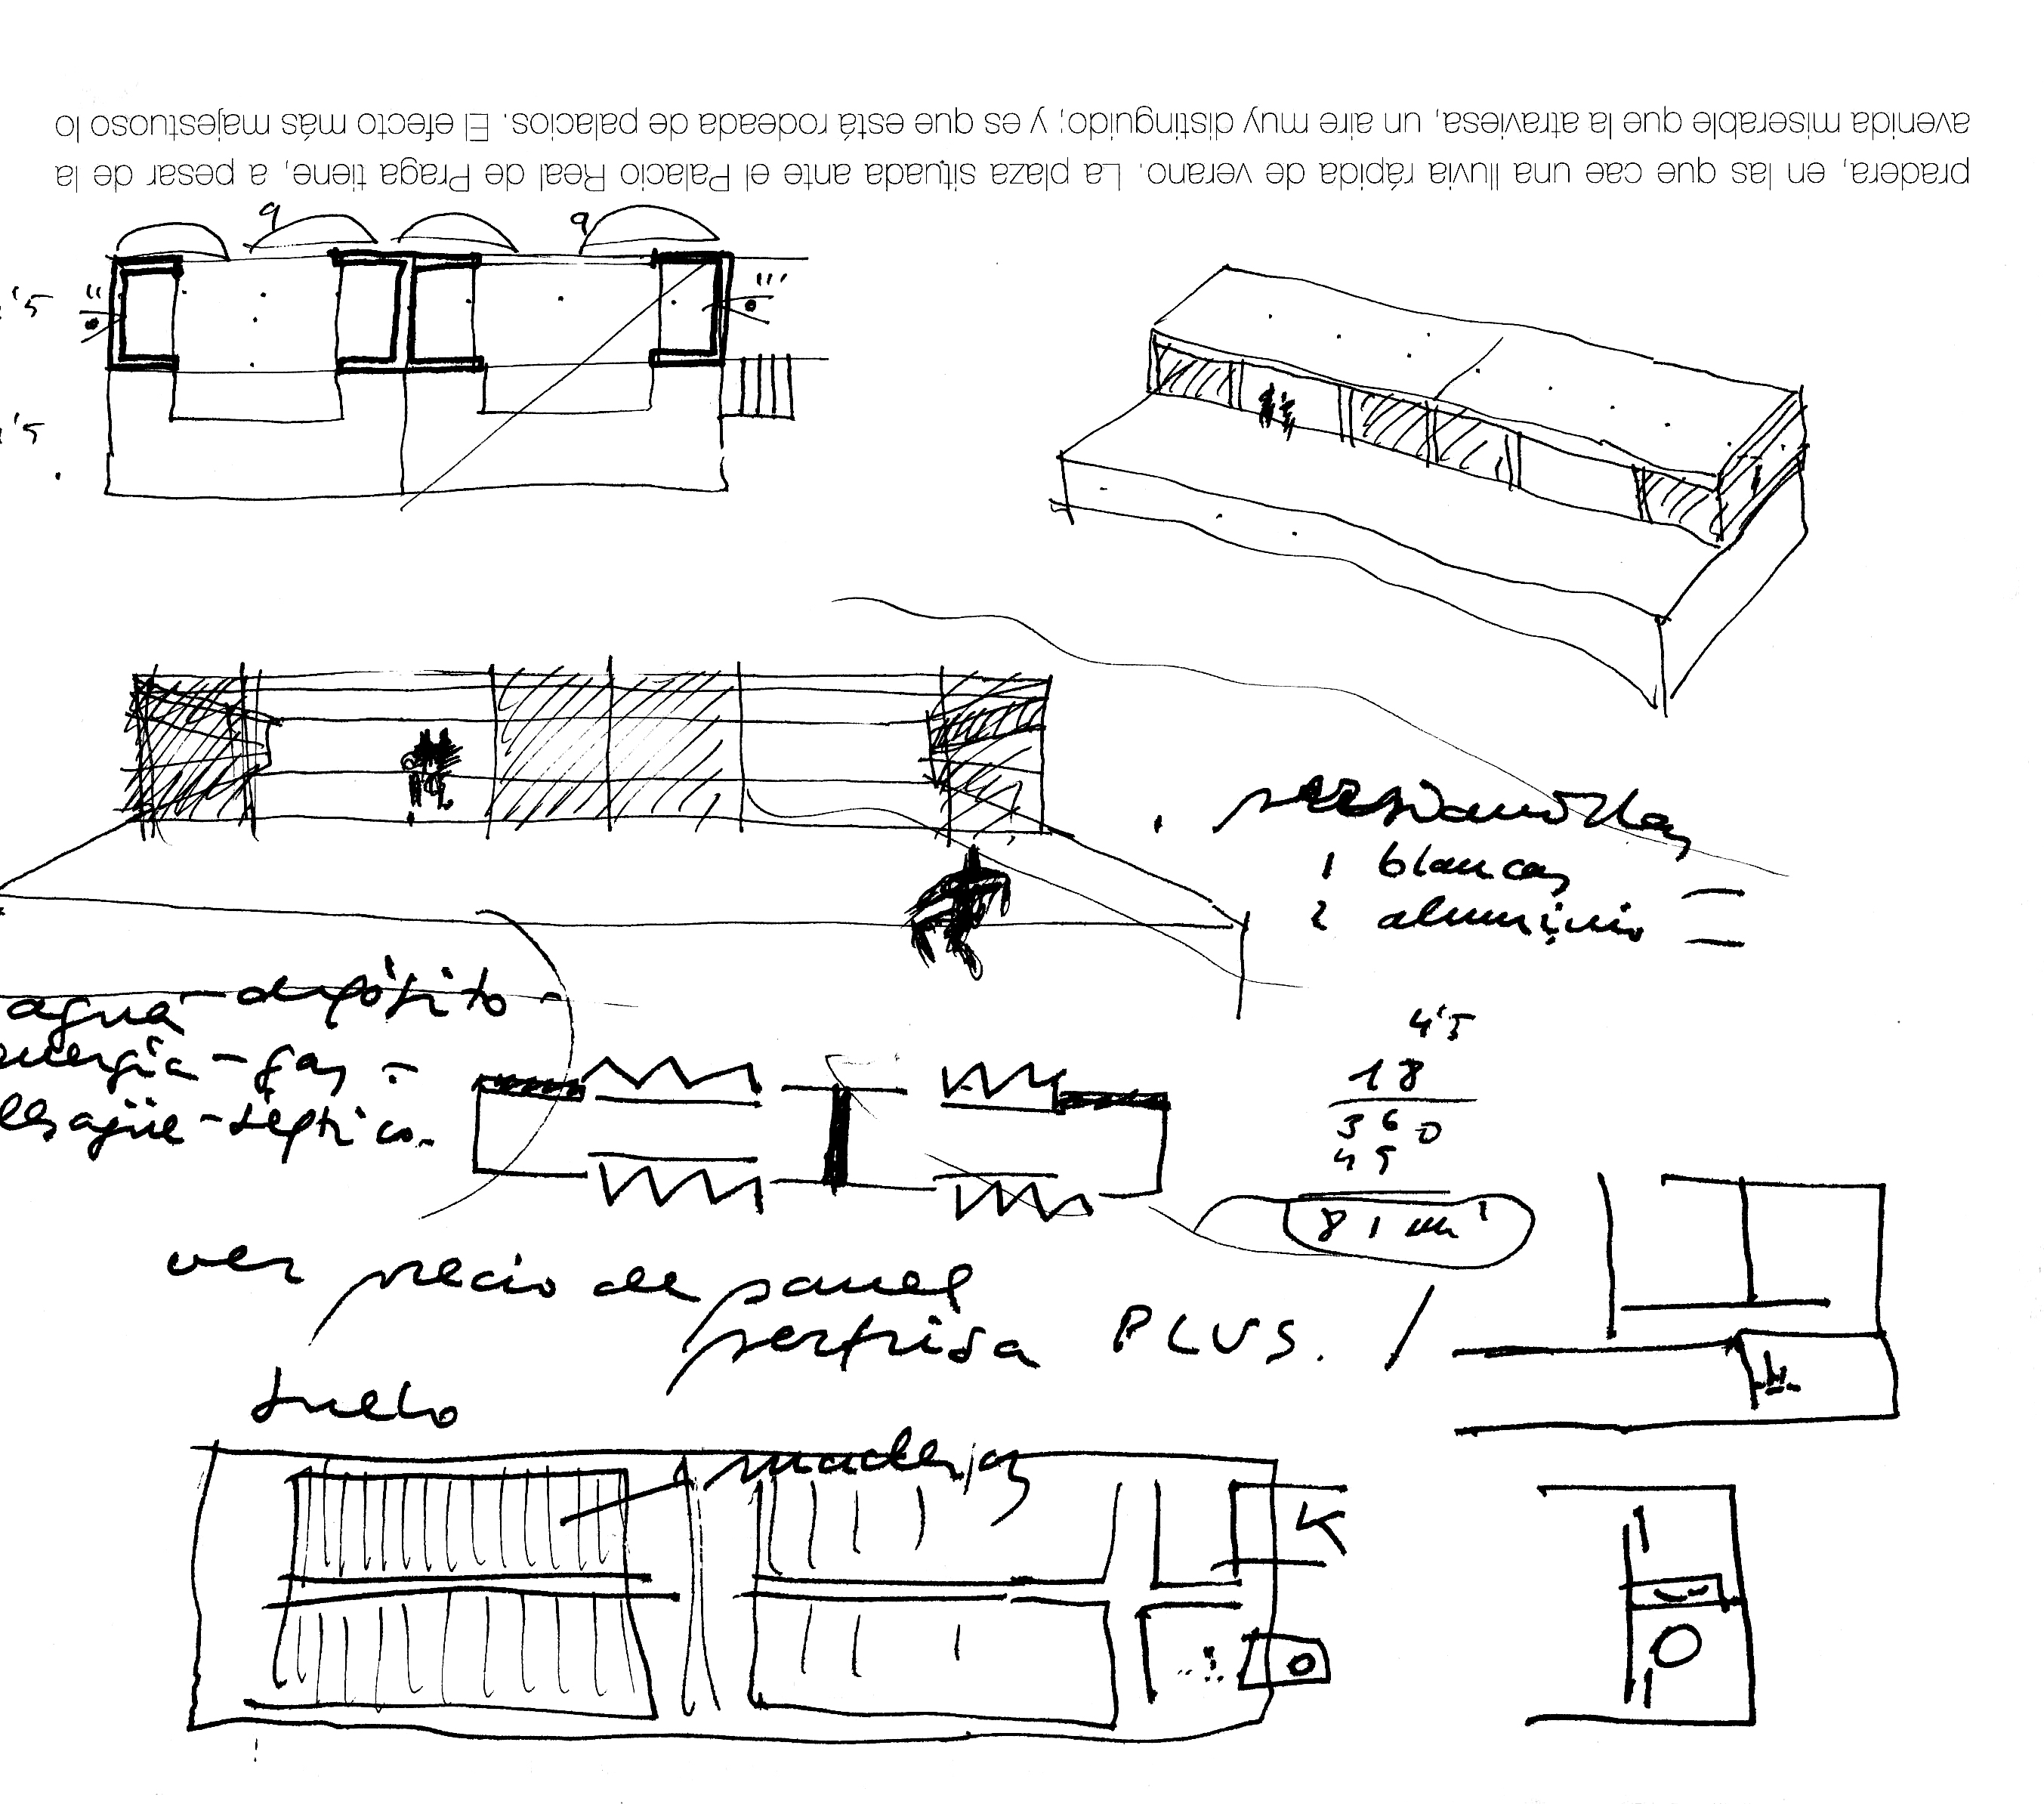 pradera, en las que cae una lluvia rápida de verano. La plaza situada ante el Palacio Real de Praga tiene, a pesar de la
avenida miserable que la atraviesa, un aire muy distinguido; y es que está rodeada de palacios. El efecto más majestuoso lo
9
9
'5
'5
1 blancas
2 aluminio
agua - depósito -
energía - gas -
desagüe - séptico.
4'5
18
360
45
81 m²
ver precio de panel
perfrisa PLUS.
suelo
madera
K